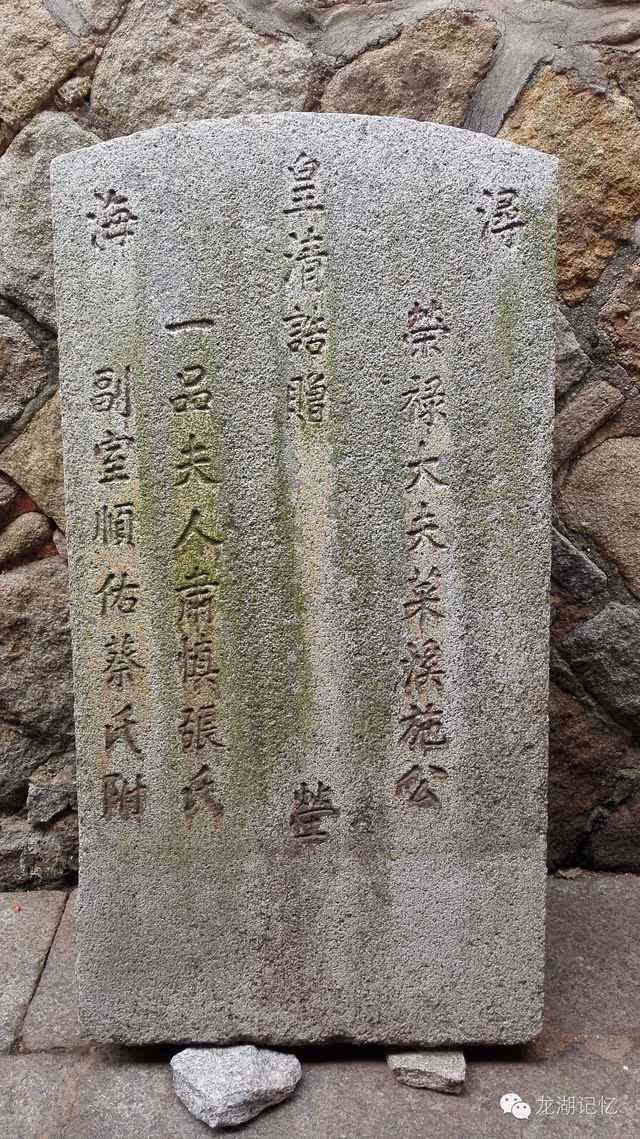 潯
榮祿大夫菜溪施公
皇清誥贈
塋
一品夫人肅慎張氏
海
副室順佑蔡氏附
龙湖记忆